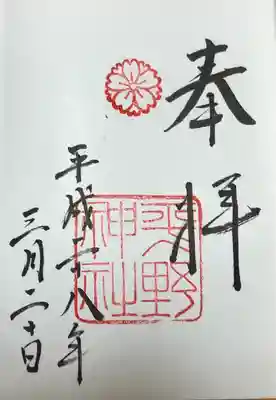 奉拝
平野神社
平成二十八年
三月二十日